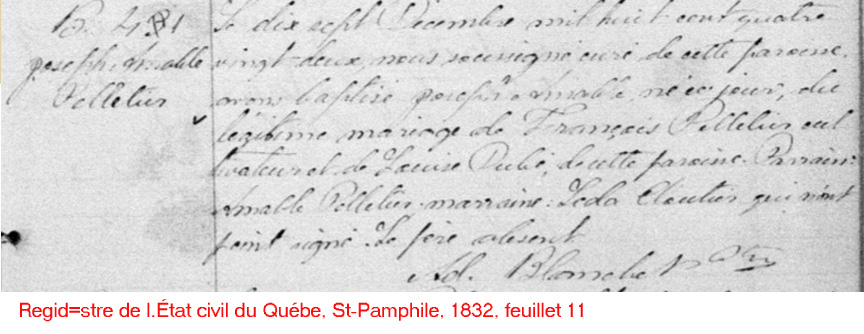 B. 4
Joseph Amable
Pelletier
Le dix sept Décembre mil huit cent quatre
vingt deux, nous soussigné curé de cette paroisse
avons baptisé Joseph Amable, né ce jour, du
légitime mariage de François Pelletier cul
tivateur et de Louise Dubé, de cette paroisse. Parrain:
Amable Pelletier. marraine: Leda Cloutier qui n'ont
point signé. Le père absent
Ad. Blanchet Ptre
Regid=stre de l.État civil du Québe, St-Pamphile, 1832, feuillet 11